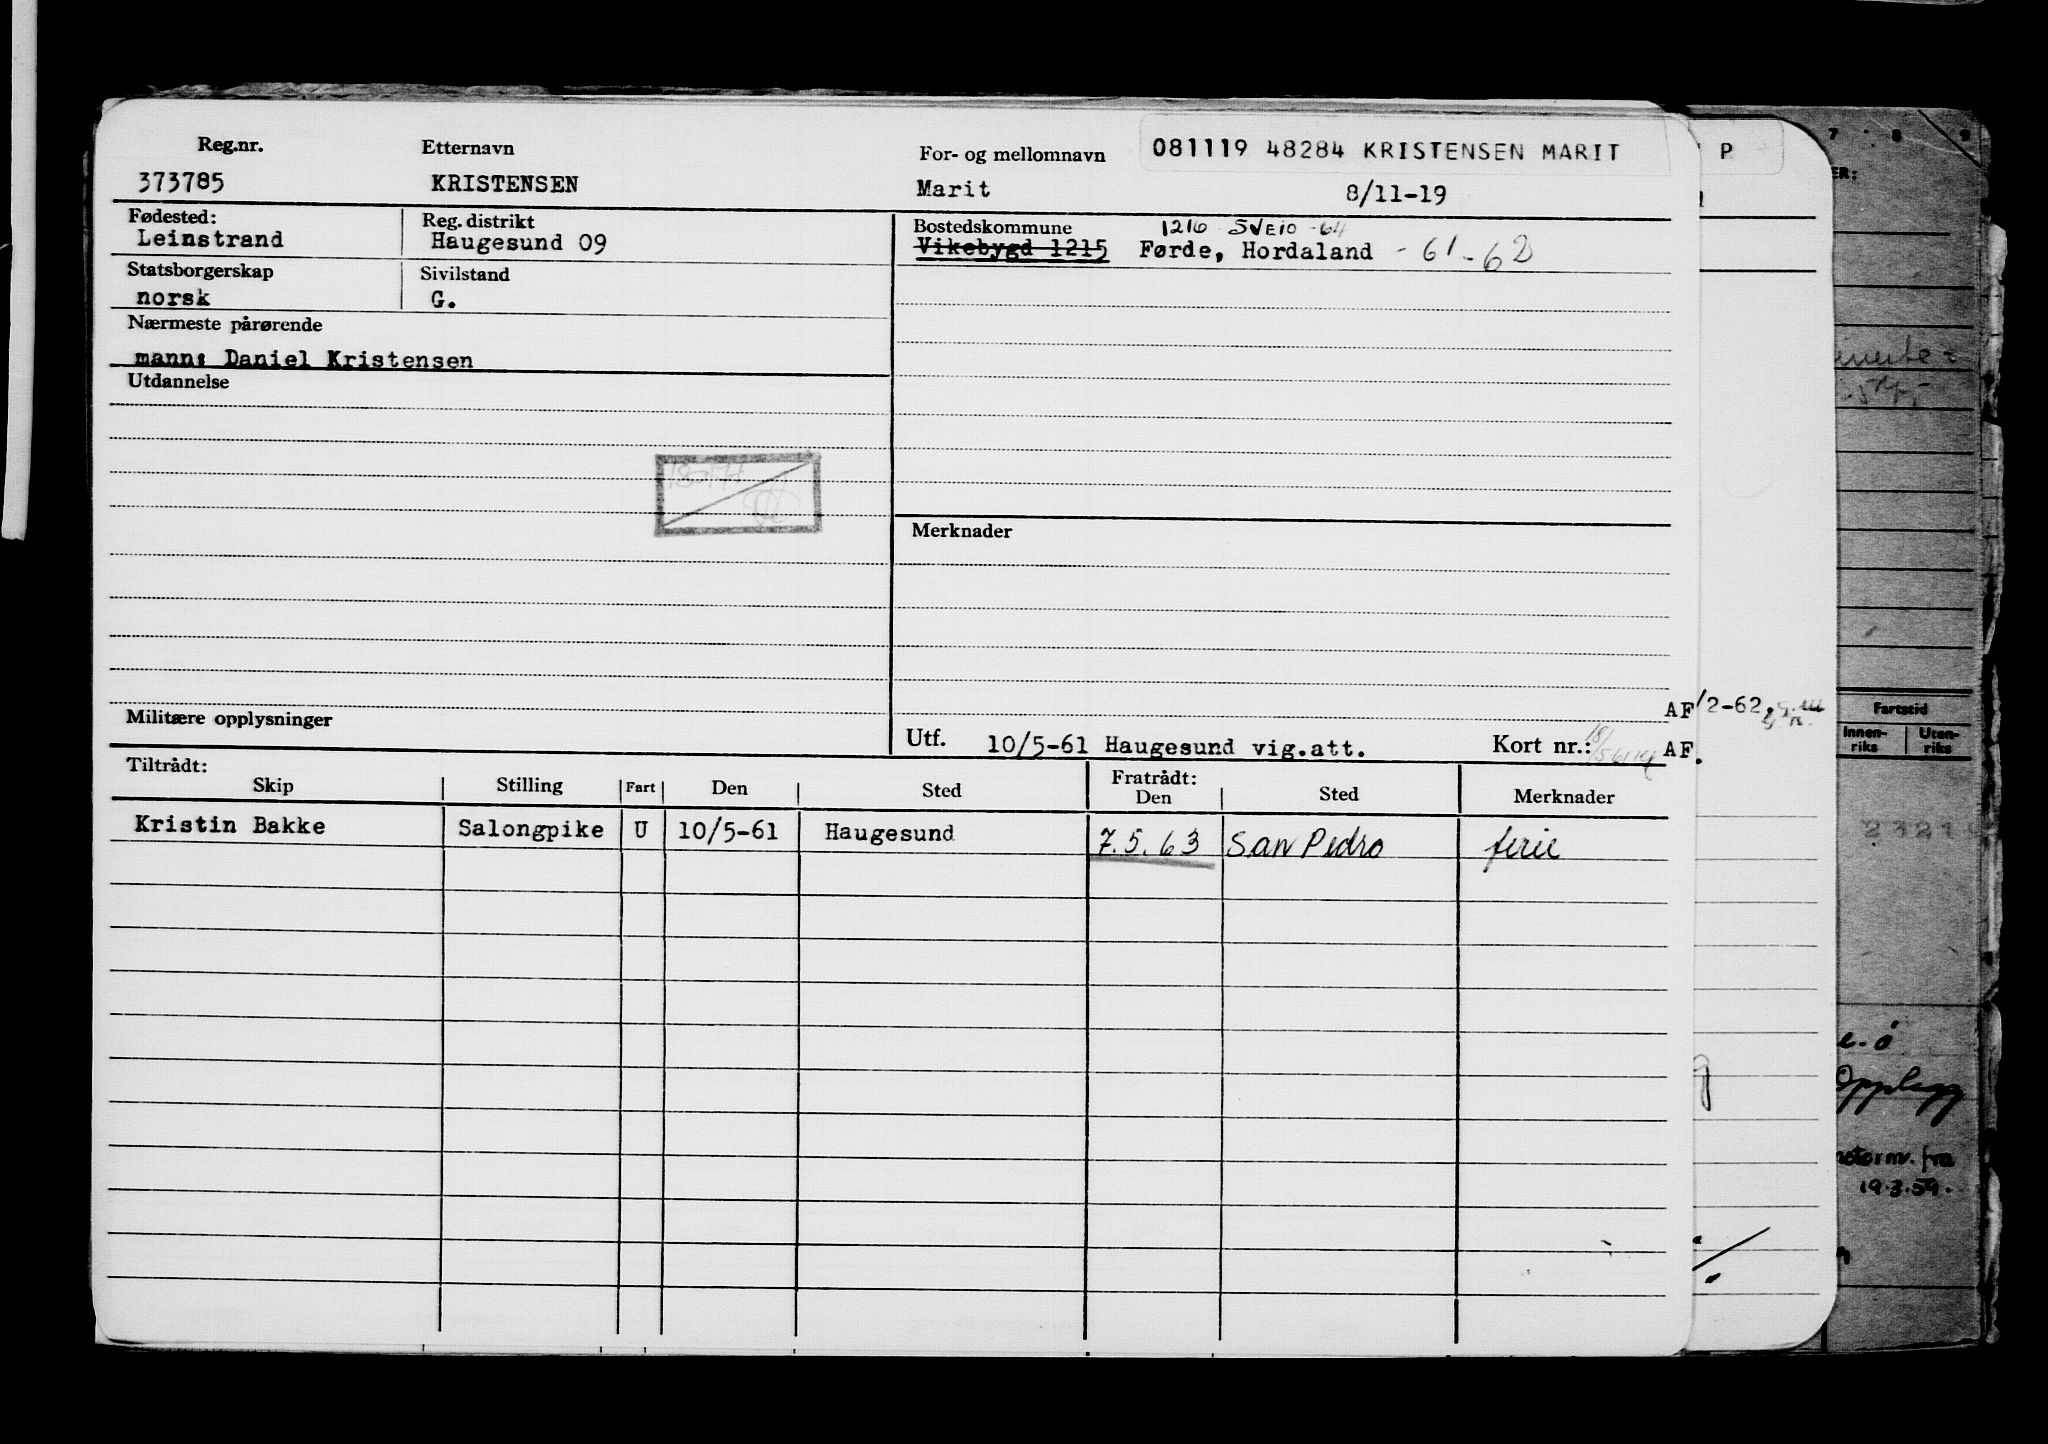 Reg.nr. Etternavn For- og mellomnavn 081119 48284 KRISTENSEN MARIT
373785 KRISTENSEN Marit 8/11-19
Fødested: Reg. distrikt Bostedskommune 1216 SVEIO -64
Leinstrand Haugesund 09 Vikebygd 1215 Førde, Hordaland - 61-62
Statsborgerskap Sivilstand
norsk G.
Nærmeste pårørende
mann: Daniel Kristensen
Utdannelse
Merknader
Militære opplysninger
Utf. 10/5-61 Haugesund vig.att. Kort nr.:
Tiltrådt: Fratrådt:
Skip Stilling Fart Den Sted Den Sted Merknader
Kristin Bakke Salongpike U 10/5-61 Haugesund 7.5.63 San Pedro ferie
P
7 8 9
ER:
AF
2-62
AF.
Fartstid
Innen-riks Uten-riks
Opplagg
fra
19.3.59.